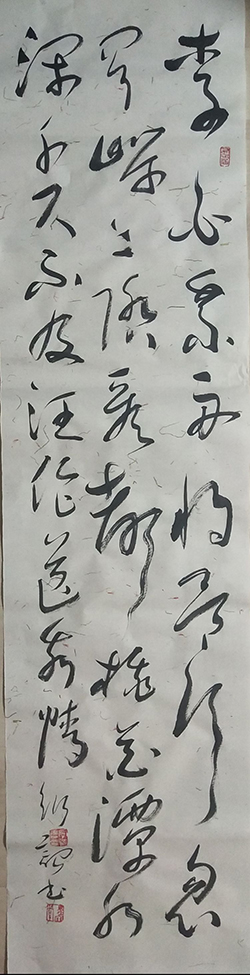 李白乘舟將欲行忽
聞岸上踏歌聲桃花潭水
深千尺不及汪倫送我情
書